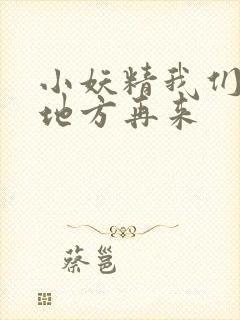 小妖精我们
地方再来
蔡邕